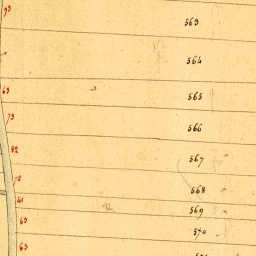 93
563
564
63
565
73
566
92
567
72
568
41
569
63
570
63